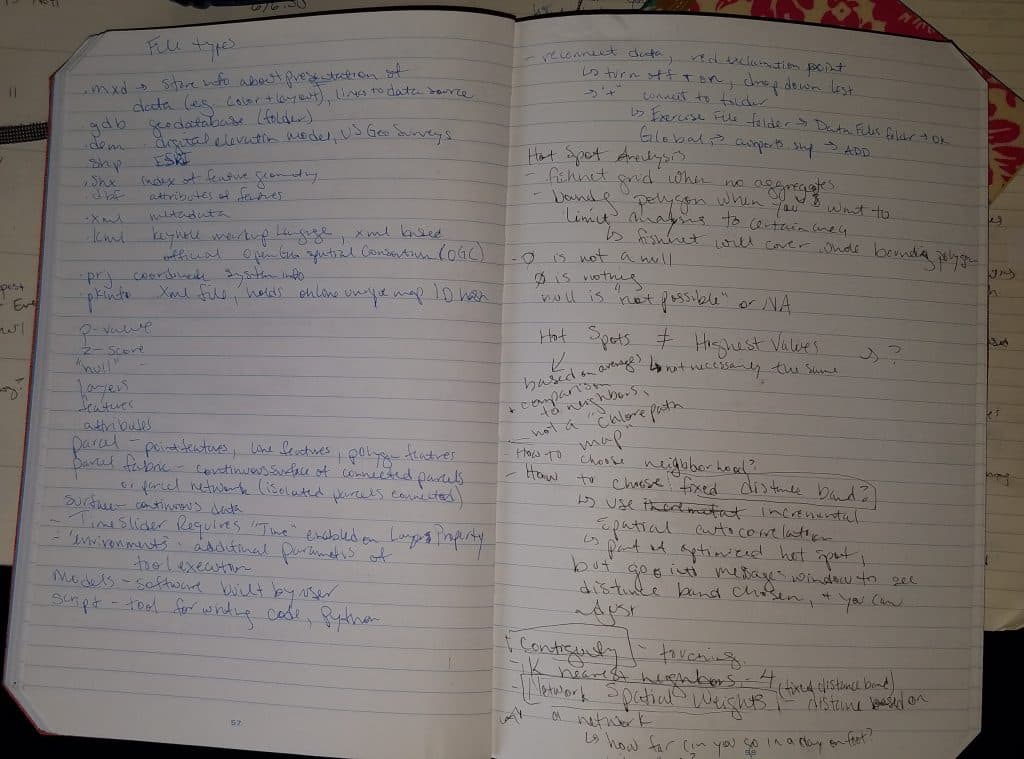 File types
.mxd → store info about presentation of
data (eg color + layout), links to data source
.gdb geodatabase (folder)
.dem digital elevation model, US Geo Surveys
.shp ESRI
.shx index of feature geometry
.dbf attributes of features
.xml metadata
.kml keyhole markup language, xml based
official Open Geo spatial Consortium (OGC)
.prj coordinate system info
pkinfo xml file, holds online unique map ID
p-value
z-score
"null"
layers
features
attributes
parcel - point features, line features, polygon features
parcel fabric - continuous surface of connected parcels
or parcel network (isolated parcels connected)
surface - continuous data
- Time Slider Requires "Time" enabled on Layers Property
- "environments" - additional parameters of
tool execution
Models - software built by user
script - tool for writing code, Python
57
- reconnect data, red exclamation point
↳ turn off + on, drop down list
→ "+" connect to folder
↳ Exercise File folder → Data Files folder → OK
Global → airports.shp → ADD
Hot Spot Analysis
- fishnet grid when no aggregates
- bounding polygon when you want to
limit analysis to certain area
↳ fishnet will cover inside bounding polygon
- Ø is not a null
Ø is nothing
null is "not possible" or NA
Hot Spots ≠ Highest Values → ?
based on averages ↳ not necessarily the same
+ comparison
to neighbors,
- not a "Chloropath
map"
- How to choose neighborhood?
- How to choose fixed distance band?
↳ use incremental
spatial autocorrelation
↳ part of optimized hot spot,
but go into messages window to see
distance band chosen, + you can
adjust
Contiguity - touching
- K nearest neighbors - 4 (fixed distance band)
- Network Spatial Weights - distance based on
a network
↳ how far can you go in a day on foot?